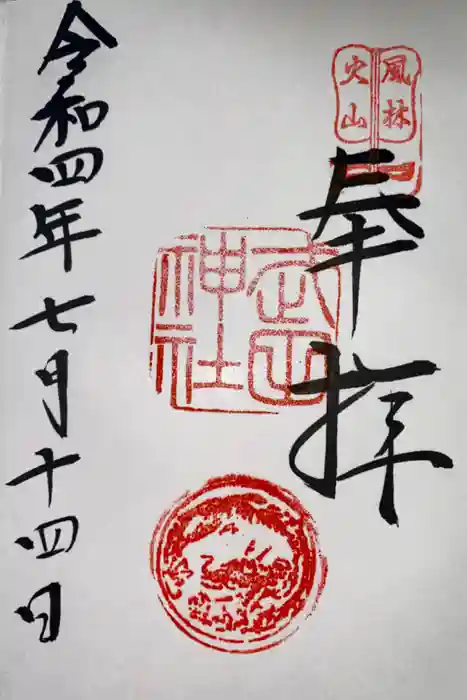 風林
火山
奉拝
武田
神社
令和四年七月十四日